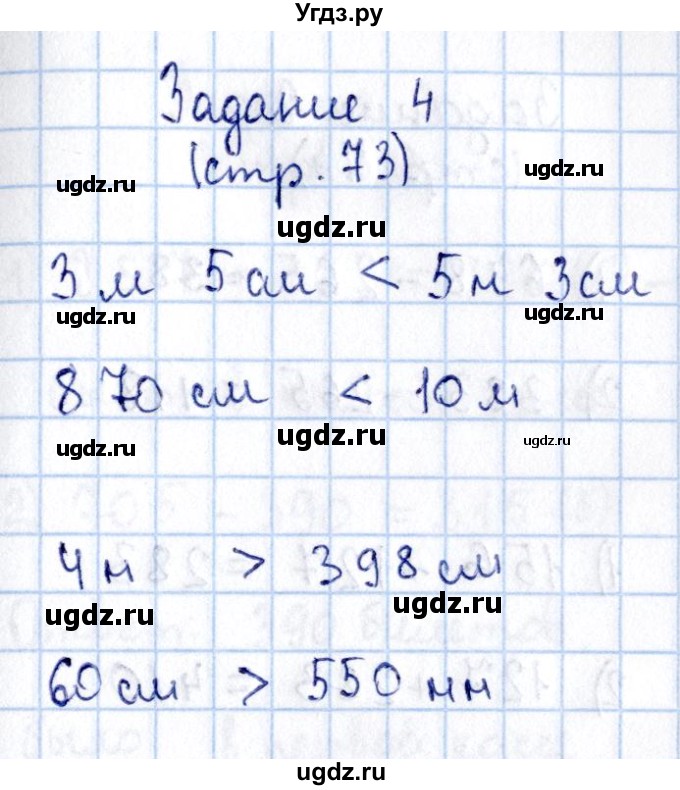 Угдз.ру
Задание 4
(стр. 73)
ugdz.ru
ugdz.ru
ugdz.ru
3 м 5 см < 5 м 3 см
ugdz.ru
ugdz.ru
ugdz.ru
870 см < 10 м
ugdz.ru
ugdz.ru
ugdz.ru
4 м > 398 см
ugdz.ru
ugdz.ru
60 см > 550 мм
ugdz.ru